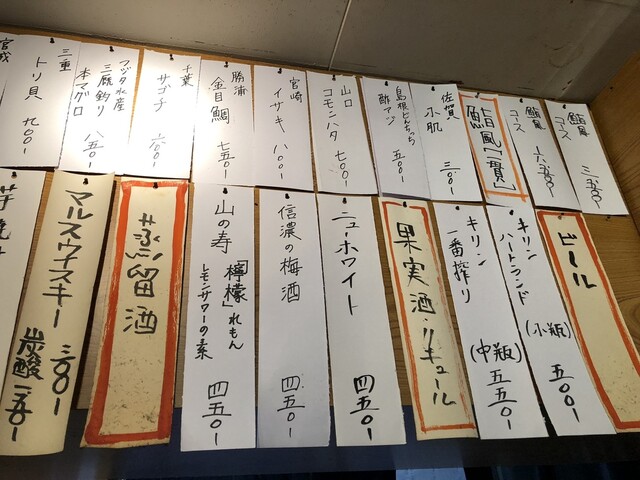 鮨風
コース
三五〇〇-
鮨風
コース
六、五〇〇-
鮨風「一貫」
佐賀
小肌 三〇〇-
島根どんちっち
酢アジ 五〇〇-
山口
コモンハタ 七〇〇-
宮崎
イサキ 八〇〇-
勝浦
金目鯛 七五〇-
千葉
サゴチ 六〇〇-
フジタ水産
三厩釣り
本マグロ 八五〇-
三重
トリ貝 九〇〇-
宮城
ビール
キリン
ハートランド
(小瓶) 五〇〇-
キリン
一番搾り
(中瓶) 五五〇-
果実酒・リキュール
ニューホワイト 四五〇-
信濃の梅酒 四五〇-
山の寿「檸檬」れもん
レモンサワーの素 四五〇-
蒸留酒
マルスウイスキー 三〇〇-
炭酸 一五〇-